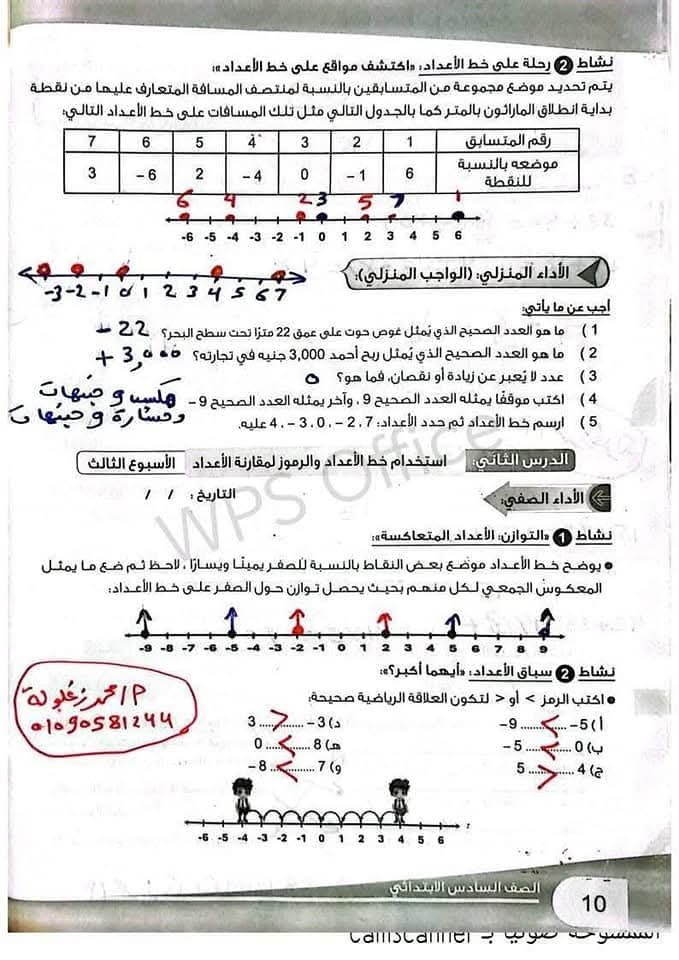 نشاط 2 رحلة على خط الأعداد: «اكتشف مواقع على خط الأعداد»:
يتم تحديد موضع مجموعة من المتسابقين بالنسبة لمنتصف المسافة المتعارف عليها من نقطة
بداية انطلاق الماراثون بالمتر كما بالجدول التالي مثل تلك المسافات على خط الأعداد التالي:
رقم المتسابق 1 2 3 4 5 6 7
موضعه بالنسبة للنقطة 6 -1 0 -4 2 -6 3
6 4 2 3 5 7 1
-6 -5 -4 -3 -2 -1 0 1 2 3 4 5 6
الأداء المنزلي: (الواجب المنزلي):
-3 -2 -1 0 1 2 3 4 5 6 7
أجب عن ما يأتي:
1 ) ما هو العدد الصحيح الذي يُمثل غوص حوت على عمق 22 مترًا تحت سطح البحر؟ - 22
2 ) ما هو العدد الصحيح الذي يُمثل ربح أحمد 3,000 جنيه في تجارته؟ + 3,000
3 ) عدد لا يُعبر عن زيادة أو نقصان، فما هو؟ 0
4 ) اكتب موقفًا يمثله العدد الصحيح 9 ، وآخر يمثله العدد الصحيح 9 - مكسب 9 جنيهات
وخسارة 9 جنيهات
5 ) ارسم خط الأعداد ثم حدد الأعداد: 7 ، 2 - ، 0 ، 3 - ، 4 عليه.
الدرس الثاني: استخدام خط الأعداد والرموز لمقارنة الأعداد الأسبوع الثالث
الأداء الصفي: التاريخ : / /
نشاط 1 «التوازن: الأعداد المتعاكسة»:
• يوضح خط الأعداد موضع بعض النقاط بالنسبة للصفر يمينًا ويسارًا ، لاحظ ثم ضع ما يمثل
المعكوس الجمعي لكل منهم بحيث يحصل توازن حول الصفر على خط الأعداد:
-9 -8 -7 -6 -5 -4 -3 -2 -1 0 1 2 3 4 5 6 7 8 9
نشاط 2 سباق الأعداد: «أيهما أكبر؟»:
• اكتب الرمز > أو < لتكون العلاقة الرياضية صحيحة:
أ) 5- ...<... 9-
ب) 0 ...<... 5-
ج) 4 ...>... 5
د) 3- ...>... 3
هـ) 8 ...<... 0
و) 7 ...<... 8-
م/ محمد زغلولة
01090581244
-6 -5 -4 -3 -2 -1 0 1 2 3 4 5 6
الصف السادس الابتدائي
10
WPS Office
الممسوحة ضوئيا بـ CamScanner